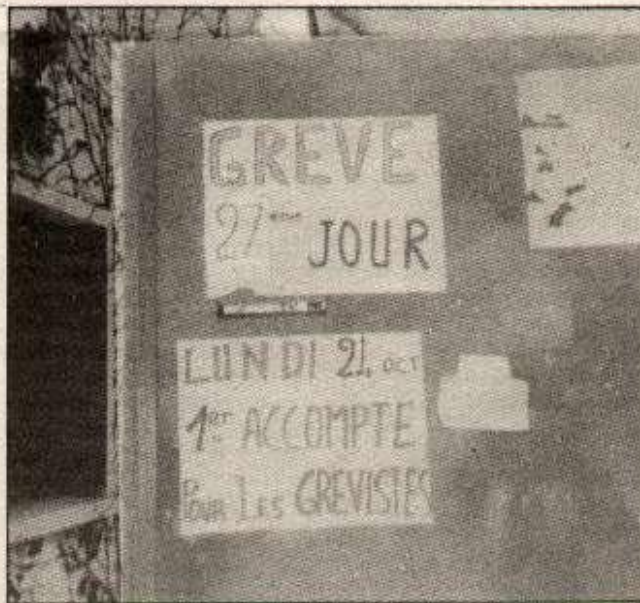 GREVE
27ème JOUR
LUNDI 21 OCT
1er ACCOMPTE
POUR LES GREVISTES